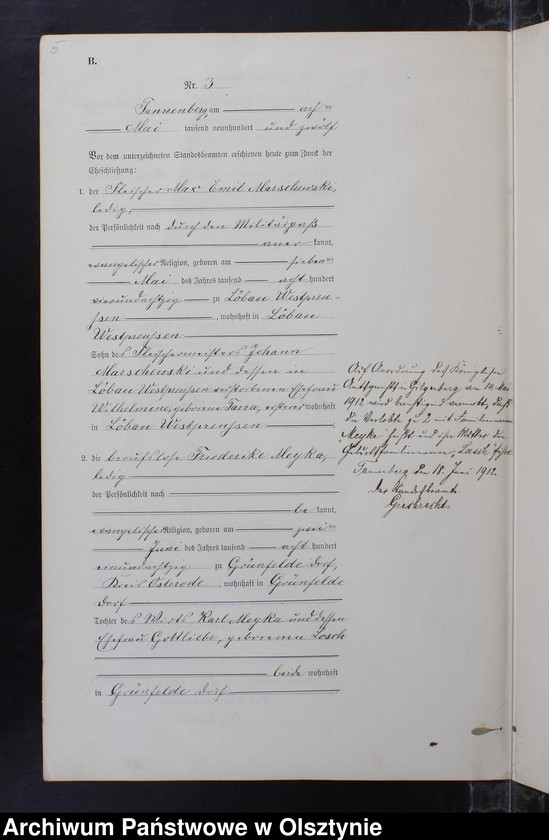 5
B.
Nr. 3
Tannenberg am acht ten
Mai tausend neunhundert und zwölf
Vor dem unterzeichneten Standesbeamten erschienen heute zum Zweck der
Eheschließung:
1. der Fleischer Max Emil Marschewski,
ledig,
der Persönlichkeit nach durch den Militärpaß
aner kannt,
evangelischer Religion, geboren am sieben ten
Mai des Jahres tausend acht hundert
vierundachtzig zu Löbau Westpreu-
ßen, wohnhaft in Löbau
Westpreußen
Sohn des Fleischermeisters Johann
Marschewski und dessen in
Löbau Westpreußen verstorbenen Ehefrau
Wilhelmine, geborene Tarra, ersterer wohnhaft
in Löbau Westpreußen
2. die berufslose Friederike Meyka,
ledig
der Persönlichkeit nach
be kannt,
evangelischer Religion, geboren am zwei ten
Juni des Jahres tausend acht hundert
einundachtzig zu Grünfelde Dorf,
Kreis Osterode, wohnhaft in Grünfelde
Dorf
Tochter des Wirts Karl Meyka und dessen
Ehefrau Gottliebe, geborenen Losch
beide wohnhaft
in Grünfelde Dorf
Auf Anordnung des Königlichen
Amtsgerichts in Gilgenburg vom 10. Mai
1912 wird berichtigend vermerkt, daß
die Verlobte zu 2 mit Familiennamen
Meyke heißt und ihre Mutter den
Geburtsfamiliennamen führt
Tannenberg den 18. Juni 1912.
Der Standesbeamte.
Archiwum Państwowe w Olsztynie